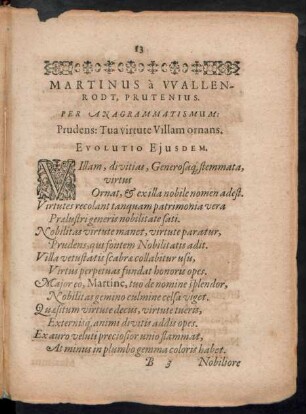 13
MARTINUS à VVALLEN-
RODT, PRUTENIUS.
PER ANAGRAMMATISMUM:
Prudens: Tua virtute Villam ornans.
EVOLUTIO EJUSDEM.
VIllam, divitias, Generosaq; stemmata,
virtus
Ornat, & ex illa nobile nomen adest.
Virtutes recolant tanquam patrimonia vera
Prælustri generis nobilitate sati.
Nobilitas virtute manet, virtute paratur,
Prudens, qui fontem Nobilitatis adit.
Villa vetustatis scabræ collabitur usu,
Virtus perpetuas fundat honoris opes.
Major eo, Martine, tuo de nomine splendor,
Nobilitas gemino culmine celsa viget.
Quæsitum virtute decus, virtute tueris,
Externisq; animi divitis addis opes.
Ex auro veluti preciosior unio flammat,
At minus in plumbo gemma coloris habet.
B 3 Nobiliore